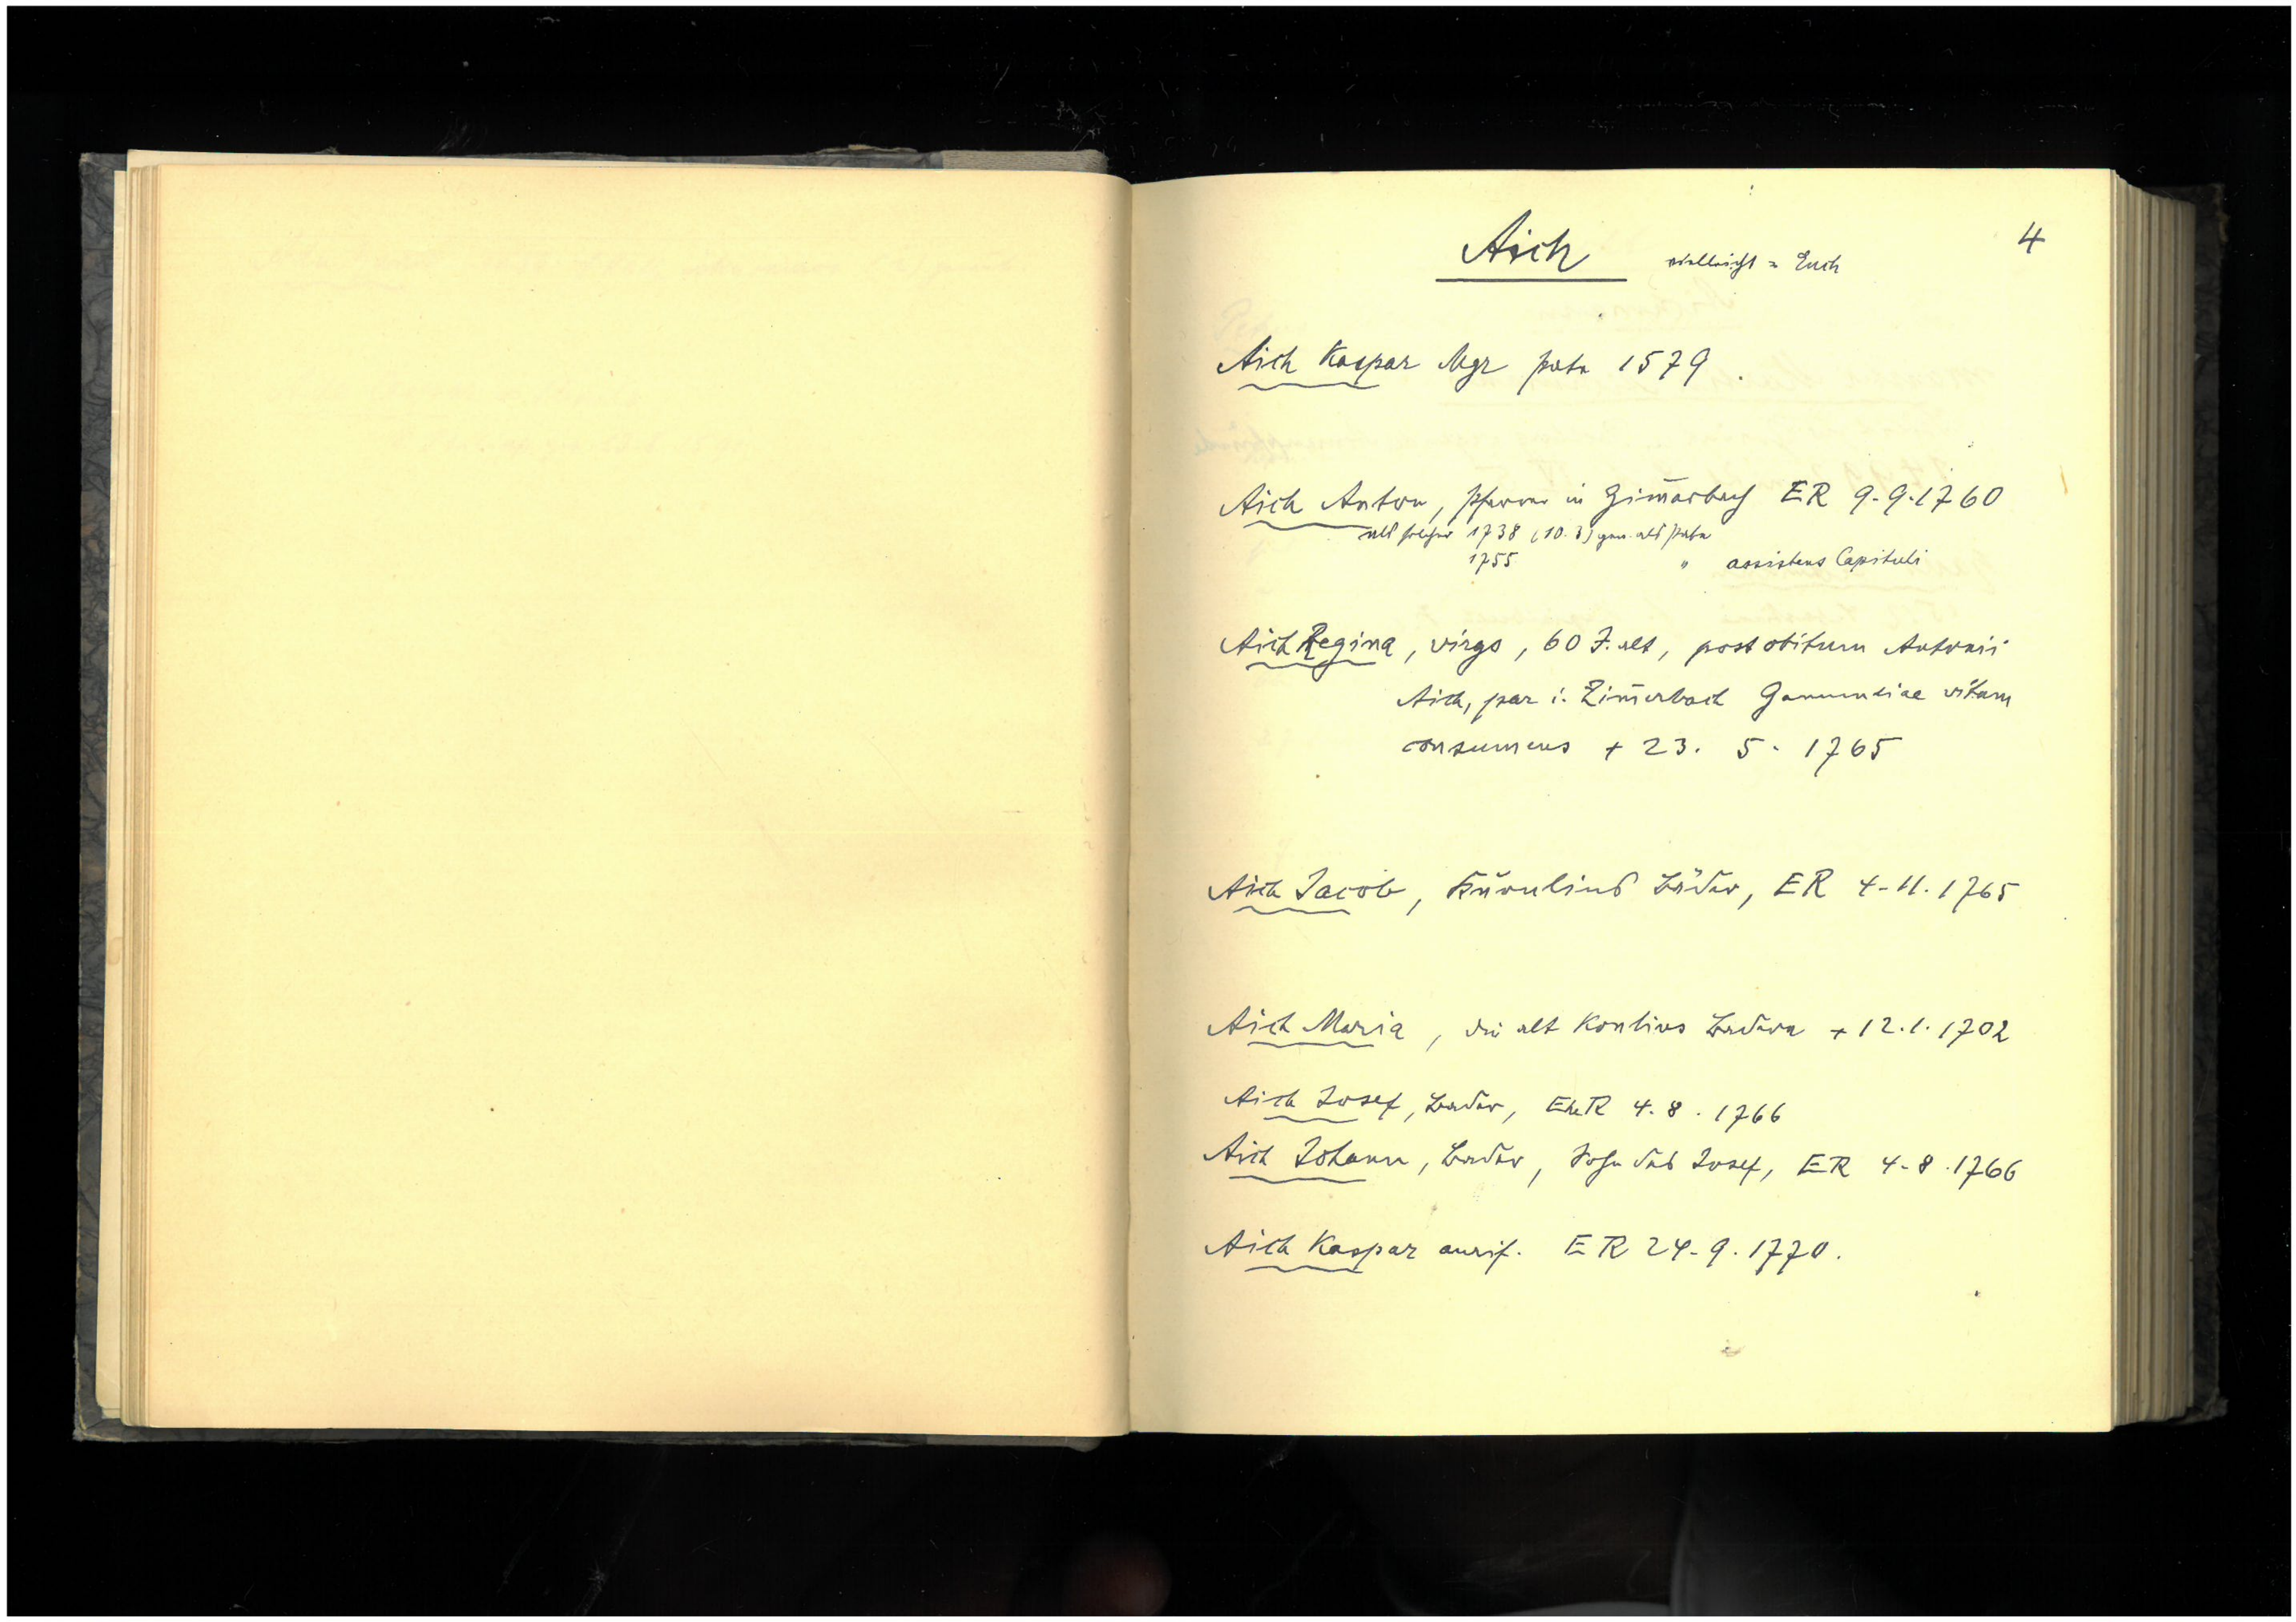 4
Aich vielleicht = Euch
Aich Kaspar Mgr pate 1579.
Aich Anton, Pfarrer in Zim̅erbach ER 9.9.1760
als solcher 1738 (10.3) gen. als Pate
1755 " assistens Capituli
Aich Regina, virgo, 60 J. alt, post obitum Antonii
Aich, par i. Zim̅erbach Gamundiae vitam
consumens + 23. 5. 1765
Aich Jacob, Bäder, ER 4.11.1765
Aich Maria, die alt Baderin + 12.1.1702
Aich Josef, Bader, EheR 4.8.1766
Aich Johann, Bader, Sohn des Josef, ER 4.8.1766
Aich Kaspar aurif. ER 24.9.1770.